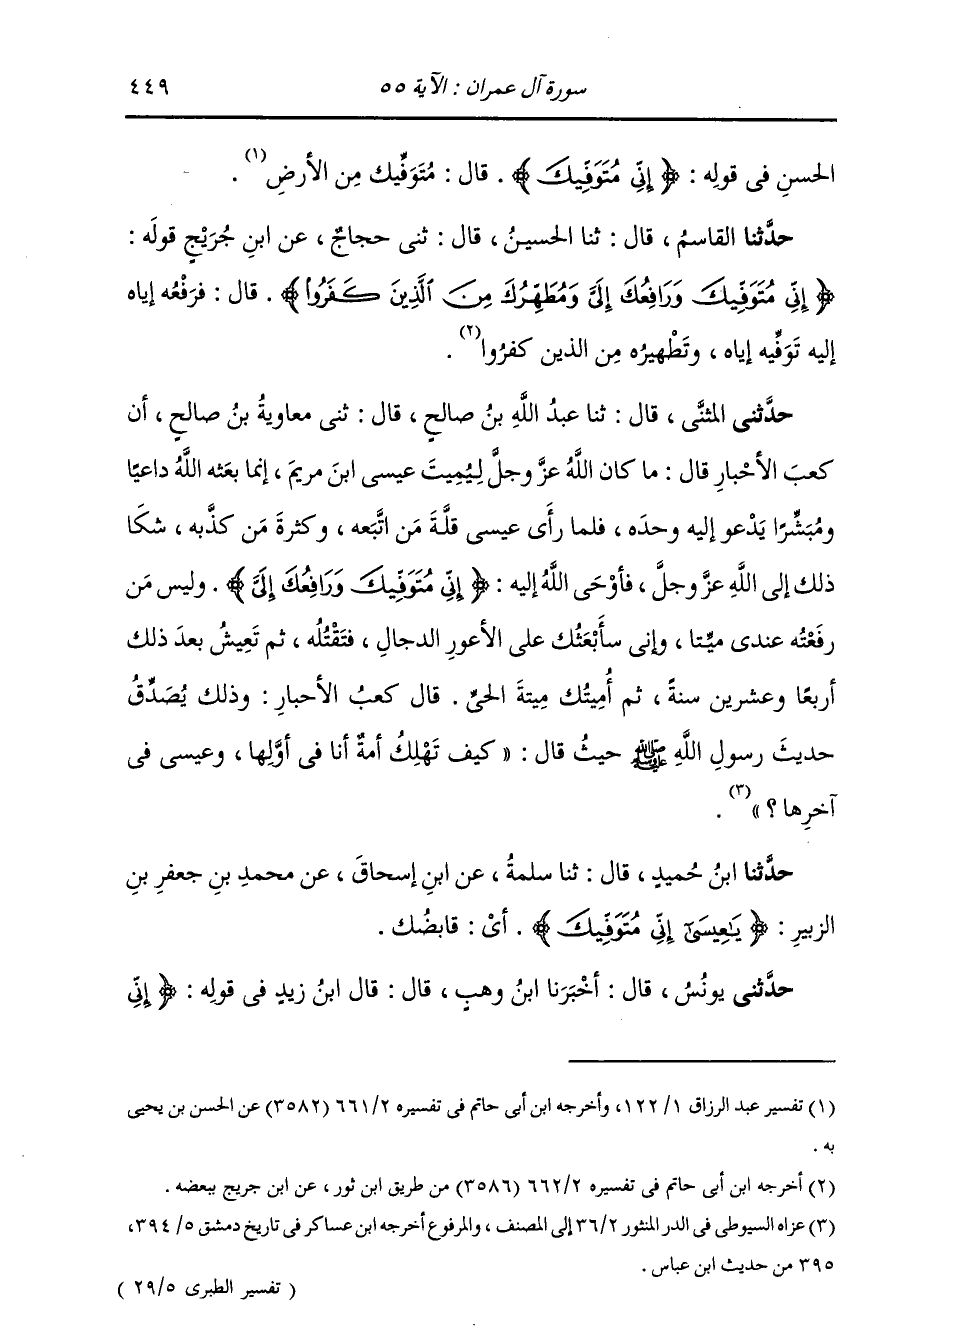 سورة آل عمران : الآية ٥٥
٤٤٩
الحسنِ فى قولِه : ﴿ إِنِّى مُتَوَفِّيكَ ﴾ . قال : مُتَوَفِّيك مِن الأرضِ(١) .
حدَّثنا القاسمُ ، قال : ثنا الحسينُ ، قال : ثنى حجاجٌ ، عن ابنِ جُرَيْجٍ قولَه :
﴿ إِنِّى مُتَوَفِّيكَ وَرَافِعُكَ إِلَىَّ وَمُطَهِّرُكَ مِنَ ٱلَّذِينَ كَفَرُوا۟ ﴾ . قال : فرَفْعُه إياه
إليه تَوَفِّيه إياه ، وتَطْهيرُه مِن الذين كفرُوا(٢) .
حدَّثنى المثنَّى ، قال : ثنا عبدُ اللَّهِ بنُ صالحٍ ، قال : ثنى معاويةُ بنُ صالحٍ ، أن
كعبَ الأحْبارِ قال : ما كان اللَّهُ عزَّ وجلَّ لِيُمِيتَ عيسى ابنَ مريمَ ، إنما بعَثه اللَّهُ داعيًا
ومُبَشِّرًا يَدْعو إليه وحدَه ، فلما رأَى عيسى قلَّةَ مَن اتَّبَعه ، وكثرةَ مَن كذَّبه ، شكَا
ذلك إلى اللَّهِ عزَّ وجلَّ ، فأوْحَى اللَّهُ إليه : ﴿ إِنِّى مُتَوَفِّيكَ وَرَافِعُكَ إِلَىَّ ﴾ . وليس مَن
رفَعْتُه عندى ميِّتا ، وإنى سأَبْعَثُك على الأعورِ الدجالِ ، فتَقْتُلُه ، ثم تَعِيشُ بعدَ ذلك
أربعًا وعشرين سنةً ، ثم أُمِيتُك مِيتةَ الحىِّ . قال كعبُ الأحبارِ : وذلك يُصَدِّقُ
حديثَ رسولِ اللَّهِ ﷺ حيثُ قال : « كيف تَهْلِكُ أمةٌ أنا فى أوَّلِها ، وعيسى فى
آخرِها ؟ »(٣) .
حدَّثنا ابنُ حُميدٍ ، قال : ثنا سلمةُ ، عن ابنِ إسحاقَ ، عن محمدِ بنِ جعفرِ بنِ
الزبيرِ : ﴿ يَٰعِيسَىٰٓ إِنِّى مُتَوَفِّيكَ ﴾ . أىْ : قابضُك .
حدَّثنى يونُسُ ، قال : أخْبَرَنا ابنُ وهبٍ ، قال : قال ابنُ زيدٍ فى قولِه : ﴿ إِنِّى
(١) تفسير عبد الرزاق ١/ ١٢٢، وأخرجه ابن أبى حاتم فى تفسيره ٦٦١/٢ (٣٥٨٢) عن الحسن بن يحيى
به .
(٢) أخرجه ابن أبى حاتم فى تفسيره ٦٦٢/٢ (٣٥٨٦) من طريق ابن ثور ، عن ابن جريج ببعضه .
(٣) عزاه السيوطى فى الدر المنثور ٣٦/٢ إلى المصنف ، والمرفوع أخرجه ابن عساكر فى تاريخ دمشق ٥/ ٣٩٤،
٣٩٥ من حديث ابن عباس .
( تفسير الطبرى ٢٩/٥ )